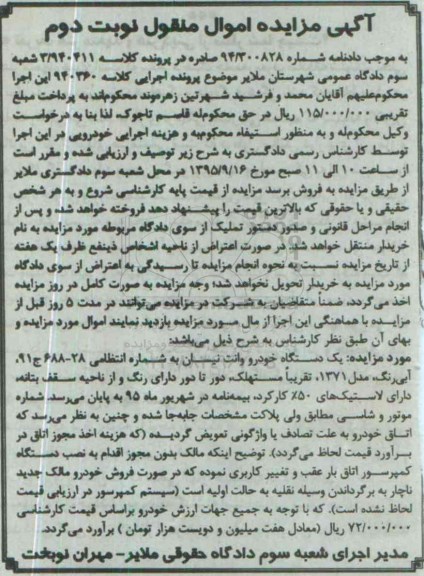 آگهی مزایده اموال منقول نوبت دوم
به موجب دادنامه شماره ۹۴/۳۰۰۸۲۸ صادره در پرونده کلاسه ۳/۹۴۰۴۱۱ شعبه
سوم دادگاه عمومی شهرستان ملایر موضوع پرونده اجرایی کلاسه ۹۴۰۳۶۰ این اجرا
محکوم‌علیهم آقایان محمد و فرشید شهرتین زهره‌وند محکوم‌اند به پرداخت مبلغ
تقریبی ۱۱۵/۰۰۰/۰۰۰ ریال در حق محکوم‌له قاسم تاجوک، لذا بنا به درخواست
وکیل محکوم‌له و به منظور استیفاء محکوم‌به و هزینه اجرایی خودرویی در این اجرا
توسط کارشناس رسمی دادگستری به شرح زیر توصیف و ارزیابی شده و مقرر است
از ساعت ۱۰ الی ۱۱ صبح مورخ ۱۳۹۵/۹/۱۶ در محل شعبه سوم دادگستری ملایر
از طریق مزایده به فروش برسد مزایده از قیمت پایه کارشناسی شروع و به هر شخص
حقیقی و یا حقوقی که بالاترین قیمت را پیشنهاد دهد فروخته خواهد شد و پس از
انجام مراحل قانونی و صدور دستور تملیک از سوی دادگاه مربوطه مورد مزایده به نام
خریدار منتقل خواهد شد. در صورت اعتراض از ناحیه اشخاص ذینفع ظرف یک هفته
از تاریخ مزایده نسبت به نحوه انجام مزایده تا رسیدگی به اعتراض از سوی دادگاه
مورد مزایده به خریدار تحویل نخواهد شد؛ وجه مزایده به صورت کامل در روز مزایده
اخذ می‌گردد، ضمناً متقاضیان به شرکت در مزایده می‌توانند در مدت ۵ روز قبل از
مزایده با هماهنگی این اجرا از مال مورد مزایده بازدید نمایند اموال مورد مزایده و
بهای آن طبق نظر کارشناس به شرح ذیل می‌باشد:
مورد مزایده: یک دستگاه خودرو وانت نیسان به شماره انتظامی ۲۸-۶۸۸ج۹۱،
آبی‌رنگ، مدل ۱۳۷۱، تقریباً مستهلک، دور تا دور دارای رنگ و از ناحیه سقف بتانه،
دارای لاستیک‌های ۵۰٪ کارکرد، بیمه‌نامه در شهریور ماه ۹۵ به پایان می‌رسد. شماره
موتور و شاسی مطابق ولی پلاکت مشخصات جابه‌جا شده و چنین به نظر می‌رسد که
اتاق خودرو به علت تصادف یا واژگونی تعویض گردیده (که هزینه اخذ مجوز اتاق در
برآورد قیمت لحاظ می‌گردد). توضیح اینکه مالک بدون مجوز اقدام به نصب دستگاه
کمپرسور اتاق بار عقب و تغییر کاربری نموده که در صورت فروش خودرو مالک جدید
ناچار به برگرداندن وسیله نقلیه به حالت اولیه است (سیستم کمپرسور در ارزیابی قیمت
لحاظ نشده است). که با توجه به جمیع جهات ارزش خودرو براساس قیمت کارشناسی
۷۲/۰۰۰/۰۰۰ ریال (معادل هفت میلیون و دویست هزار تومان ) برآورد می‌گردد.
مدیر اجرای شعبه سوم دادگاه حقوقی ملایر- مهران نوبخت